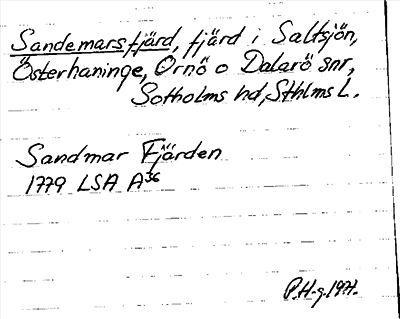 Sandemarsfjärd, fjärd i Saltsjön,
Österhaninge, Ornö o Dalarö snr,
Sotholms hd, Sthlms L.
Sandmar Fjärden
1779 LSA A36
P.H-g. 1971.